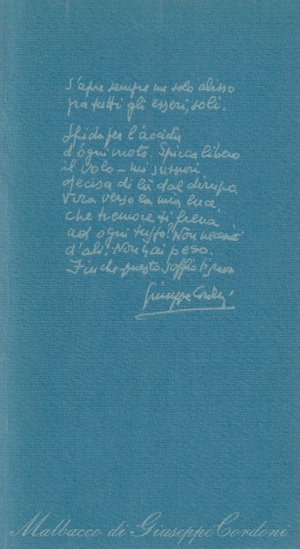 S'apre sempre un solo abisso
fra tutti gli esseri, soli.
Sfida per l'accidia
d'ogni moto. Spicca libero
il volo – mi sussurri
decisa di là dal dirupo.
Vira verso la mia luce,
che tremore ti frena
ad ogni tuffo? Non necessiti
d'ali. Non hai peso.
Finché questo soffio ti
Giuseppe Cordoni
Malbacco di Giuseppe Cordoni